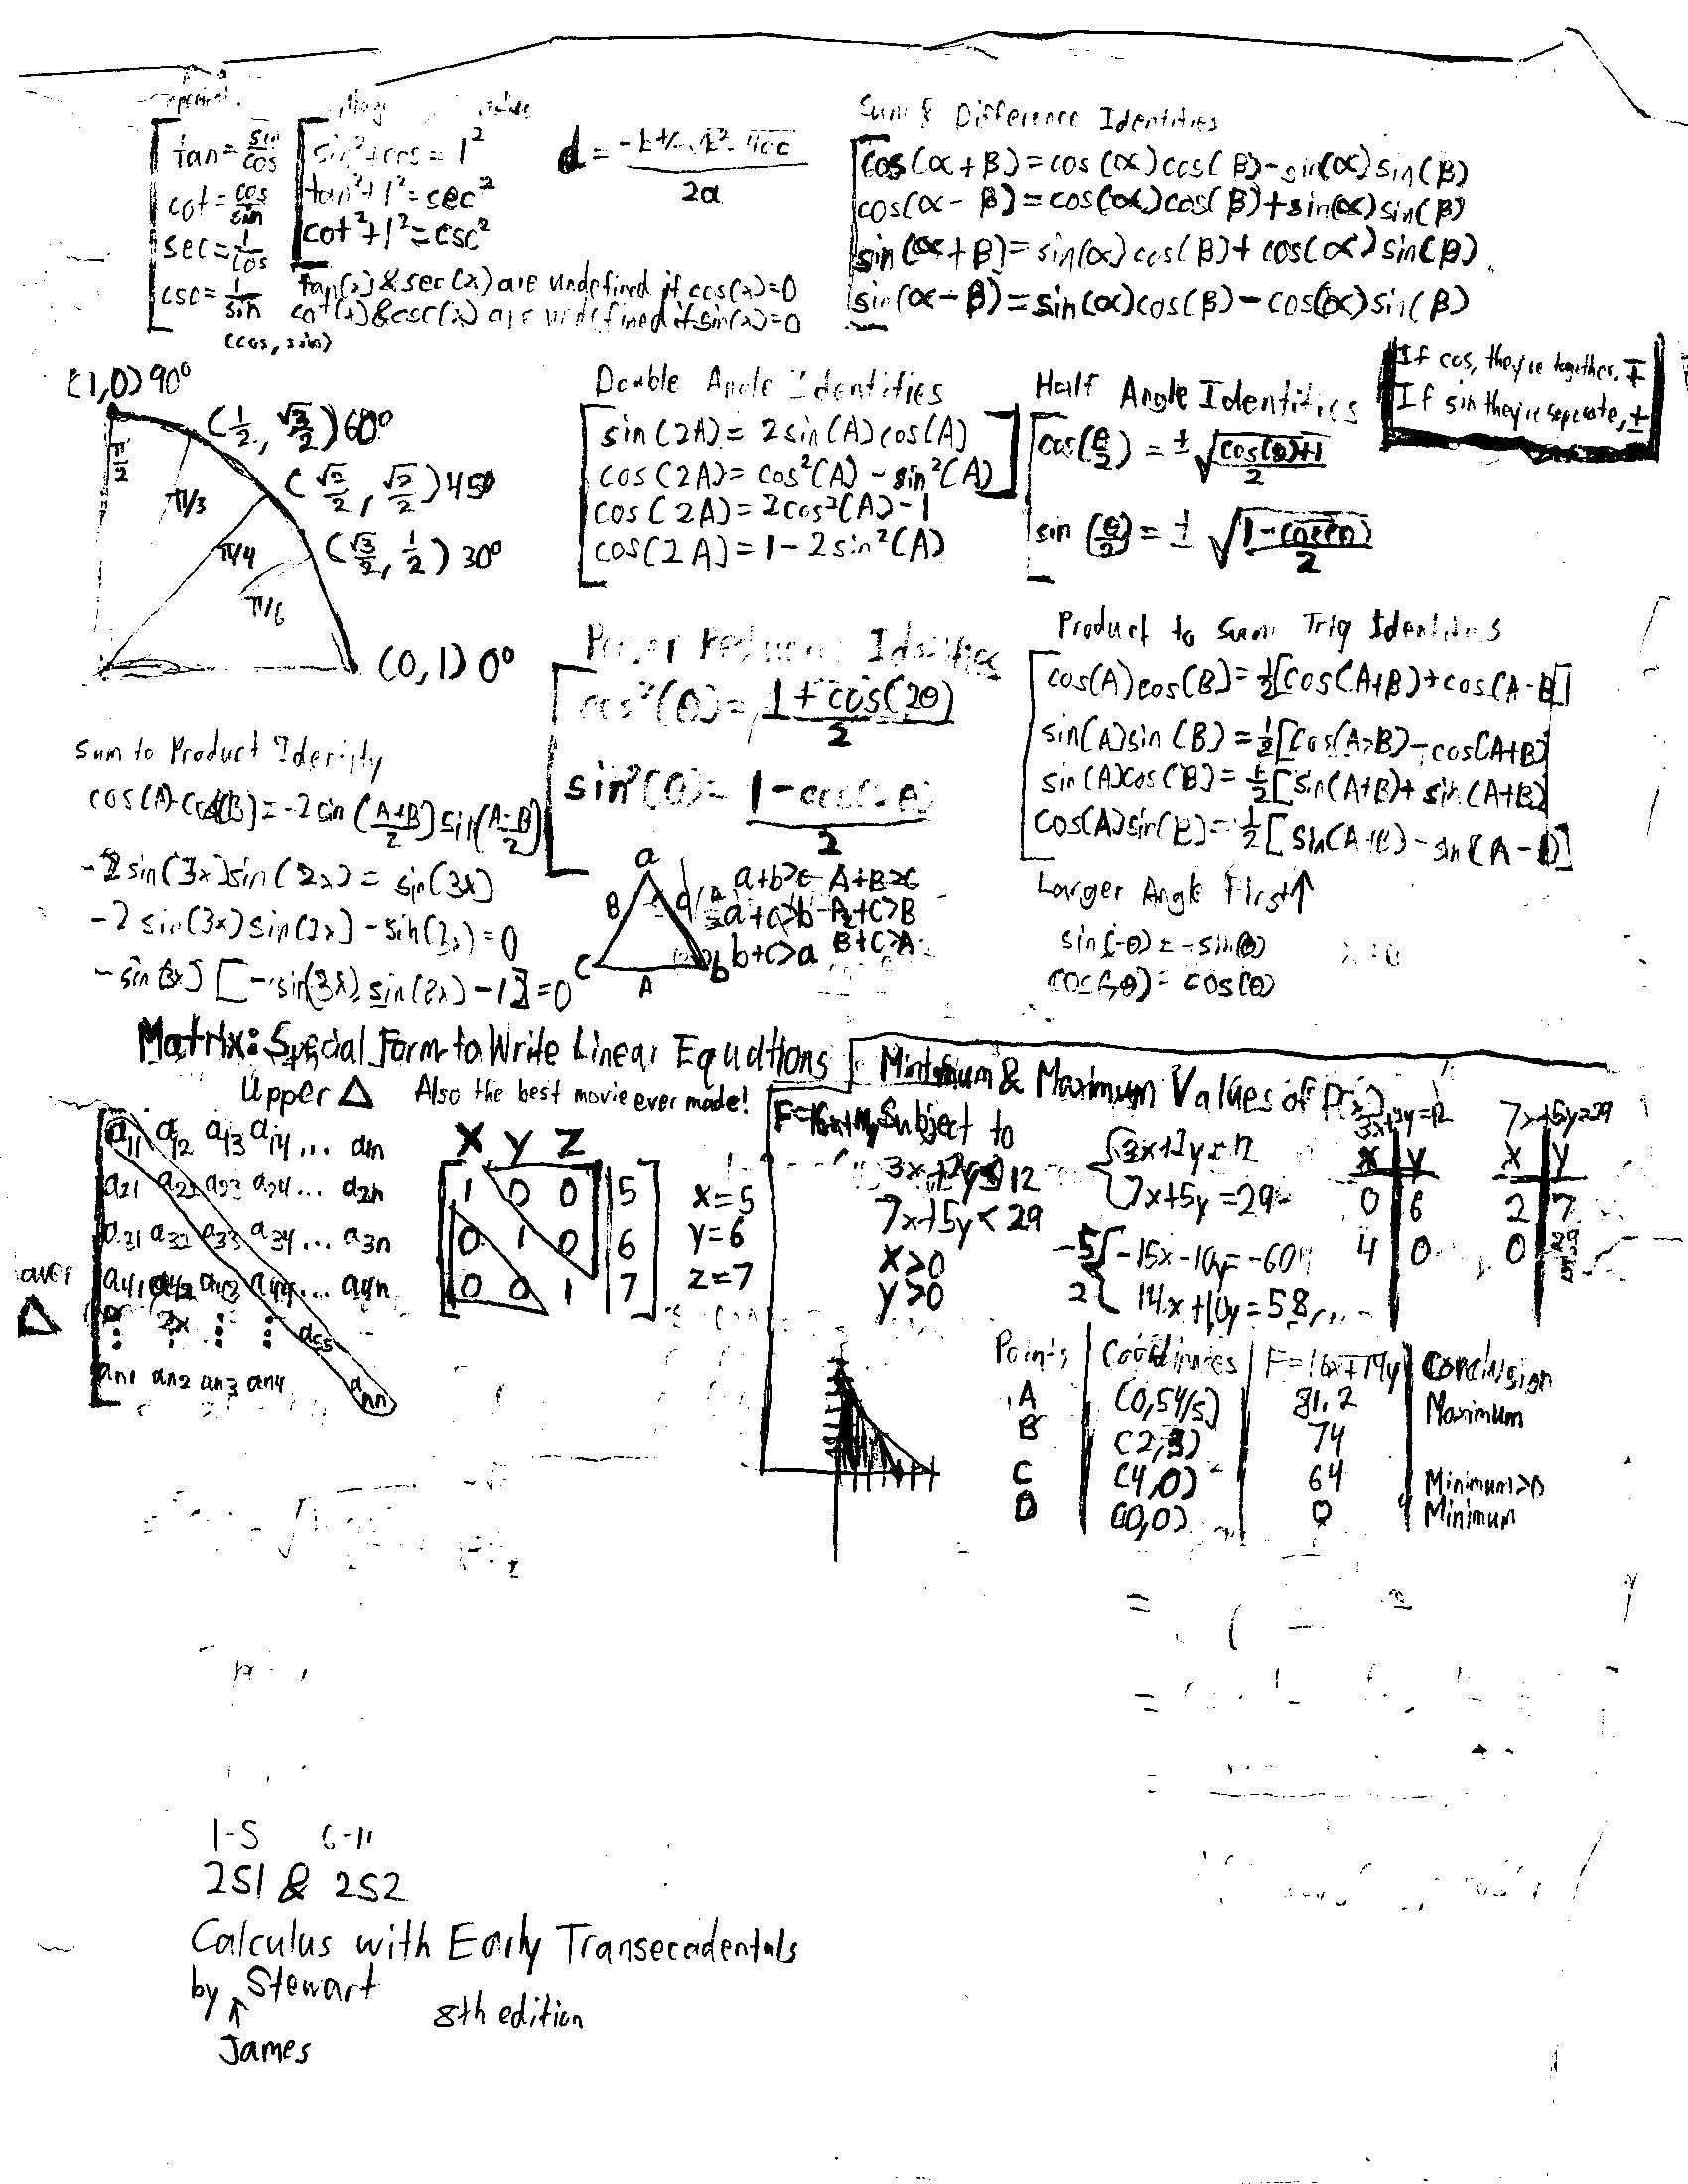 tan = sin/cos
cot = cos/sin
sec = 1/cos
csc = 1/sin
(cos, sin)
sin²+cos = 1²
tan²+1²=sec²
cot²+1²=csc²
tan(x) & sec(x) are undefined if cos(x)=0
cot(x) & csc(x) are undefined if sin(x)=0
2a
Sum & Difference Identities
cos(α+β)=cos(α)cos(β)-sin(α)sin(β)
cos(α-β)=cos(α)cos(β)+sin(α)sin(β)
sin(α+β)=sin(α)cos(β)+cos(α)sin(β)
sin(α-β)=sin(α)cos(β)-cos(α)sin(β)
If cos, they're together, ∓
If sin they're seperate, ±
(1,0) 90°
(1/2, √3/2) 60°
(√2/2, √2/2) 45°
(√3/2, 1/2) 30°
(0,1) 0°
π/2
π/3
π/4
π/6
Double Angle Identities
sin(2A)=2sin(A)cos(A)
cos(2A)=cos²(A)-sin²(A)
cos(2A)=2cos²(A)-1
cos(2A)=1-2sin²(A)
Half Angle Identities
cos(θ/2)=±√cos(θ)+1/2
sin(θ/2)=±√1-cos(θ)/2
Power Reducing Identities
cos²(θ)=1+cos(2θ)/2
sin²(θ)=
Product to Sum Trig Identities
cos(A)cos(B)=1/2[cos(A+B)+cos(A-B)]
sin(A)sin(B)=1/2[cos(A-B)-cos(A+B)]
sin(A)cos(B)=1/2[sin(A+B)+sin(A+B)]
cos(A)sin(B)=1/2[sin(A+B)-sin(A-B)]
Larger Angle First↑
sin(-θ)=-sin(θ)
cos(-θ)=cos(θ)
Sum to Product Identity
cos(A)-cos(B)=-2sin(A+B/2)sin(A-B/2)
-2sin(3x)sin(2x)=sin(3x)
-2sin(3x)sin(2x)-sin(3x)=0
-sin(3x)[-sin(3x)sin(2x)-1]=0
a
B
C
A
b
a+b>c A+B>C
a+c>b A+C>B
b+c>a B+C>A
Matrix: Special Form to Write Linear Equations
Upper △ Also the best movie ever made!
a11 a12 a13 a14 ... a1n
a21 a22 a23 a24 ... a2n
a31 a32 a33 a34 ... a3n
a41 a42 a43 a44 ... a4n
a55
an1 an2 an3 an4 ann
△
X Y Z
1 0 0 | 5
0 1 0 | 6
0 0 1 | 7
x=5
y=6
z=7
Minimum & Maximum Values of
Subject to
3x+2y≤12
7x+5y<29
x>0
y>0
3x+2y=12
7x+5y=29
-5 -15x-10y=-60
2 14x+10y=58
3x+2y=12
X Y
0 6
4 0
7x+5y=29
X Y
2 7
0 29/5
Points | Coordinates | F=16x+14y | Conclusion
A (0,54/5) 81.2 Maximum
B (2,3) 74
C (4,0) 64 Minimum>0
D (0,0) 0 Minimum
1-5 6-11
251 & 252
Calculus with Early Transecadentals
by Stewart
James
8th edition